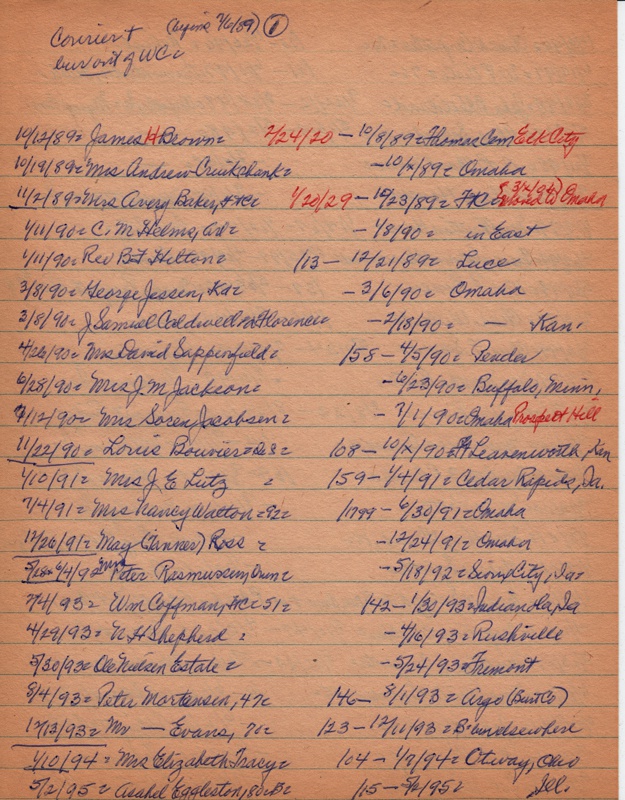 Courier + (begins 7/6/89) ①
bur out of WC=
10/12/89= James H Brown= 2/24/20 — 10/8/89= Thomas Cem Elk City
10/19/89= Mrs Andrew Cruikshank= — 10/x/89= Omaha
11/2/89= Mrs Avery Baker, = 1/20/29 — 10/23/89= Omaha
1/11/90= C. M Helms, = — 1/8/90= in East
1/11/90= Rev B F Hilton= /13 — 12/21/89= Luce
3/8/90= George Jessen, Ka= — 3/6/90= Omaha
3/8/90= J Samuel Caldwell Florence= — 2/18/90= — Kan.
4/26/90= Mrs David Sappenfield= /58 — 4/5/90= Pender
6/28/90= Mrs J M Jackson= — 6/23/90= Buffalo, Minn,
7/12/90= Mrs Soren Jacobsen= — 7/1/90= Omaha Prospect Hill
11/22/90= Louis Bouvier= /08 — 10/x/90= Ft Leavenworth, Kan
1/10/91= Mrs J E Lutz = /59 — 1/4/91= Cedar Rapids, Ia.
7/4/91= Mrs Nancy Watton=92= /1799 — 6/30/91= Omaha
12/26/91= May (Tanner) Ross = — 12/24/91= Omaha
6/4/92= Peter Rasmussen, = — 5/18/92= Sioux City, Ia=
2/4/93= Wm Coffman, 51= /42 — 1/30/93= Indianola, Ia
4/29/93= N H Shepherd = — 4/16/93= Rushville
5/30/93= Ole Nielsen Estate = — 5/24/93= Fremont
8/4/93= Peter Mortensen, 47= /46 — 8/1/93= Argo (Burt Co)
12/13/93= Mr — Evans, 70= /23 — 12/11/93= B'  elsewhere
1/10/94= Mrs Elizabeth Tracy= /04 — 1/7/94= Otway, Ohio
5/2/95= Asahel Eggleston, 80= /15 — 5/2/95= Ill.